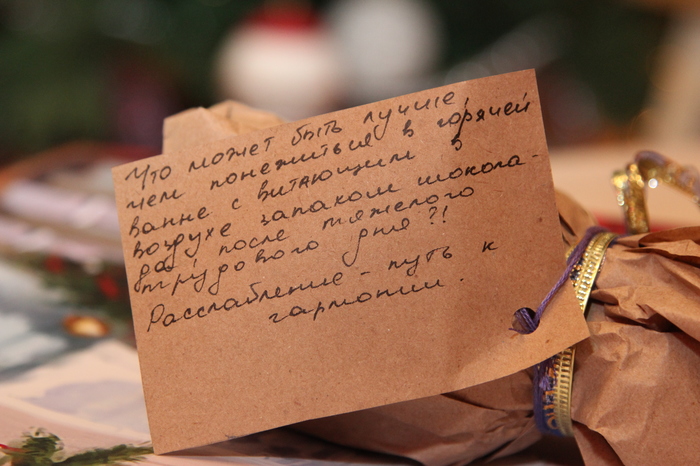 Что может быть лучше,
чем понежиться в горячей
ванне с витающим в
воздухе запахом шокола-
да, после тяжелого
трудового дня?!
Расслабление - путь к
гармонии.